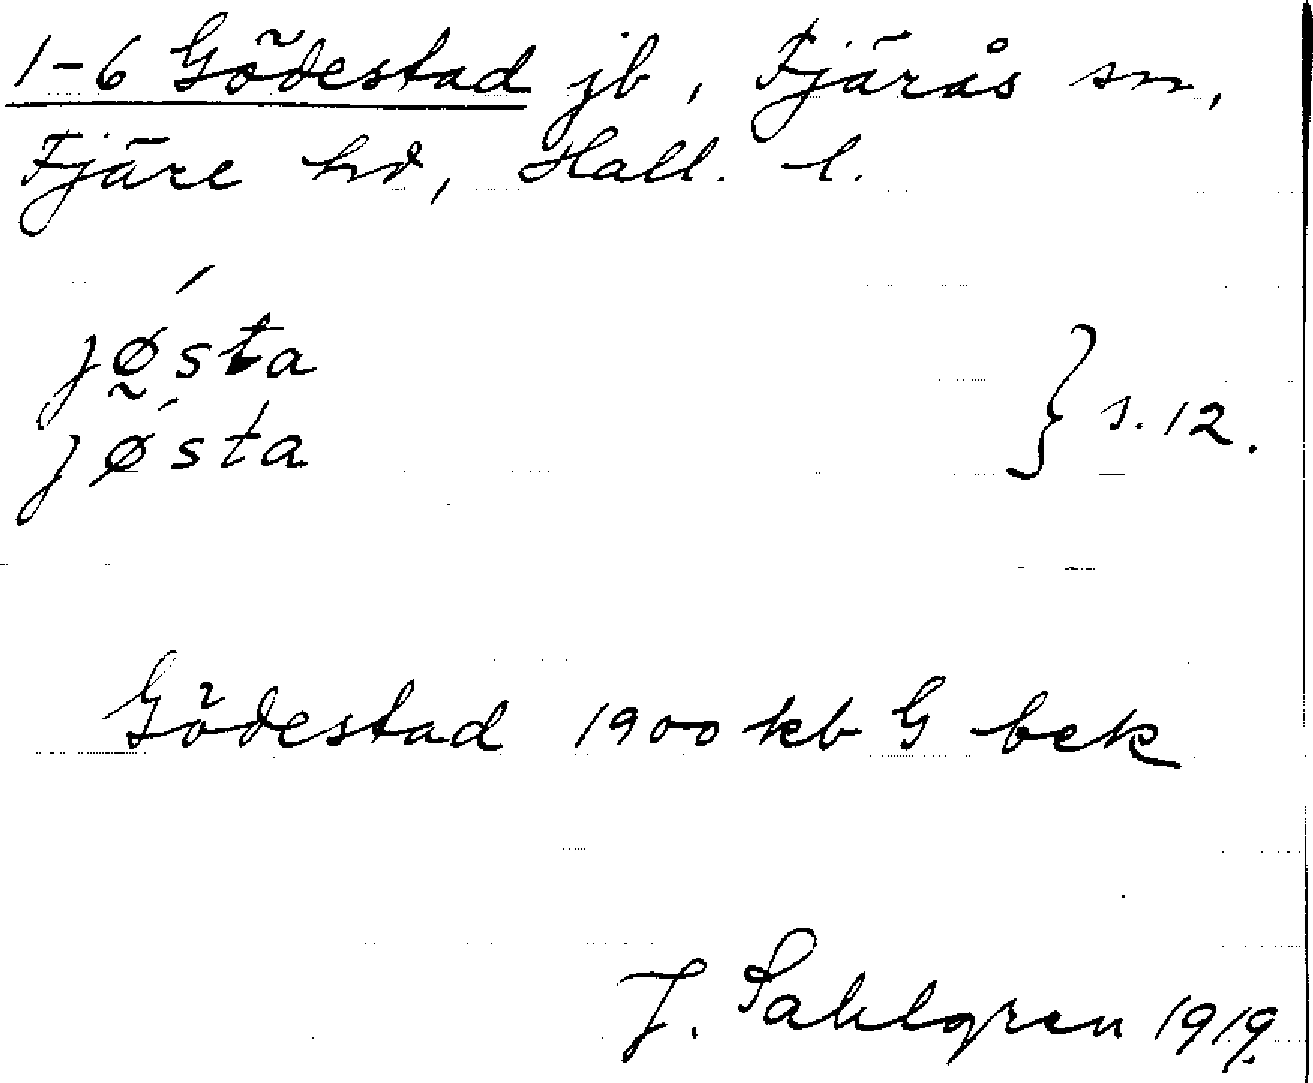 1-6 Gödestad jb, Fjärås sn,
Fjäre hd, Hall. l.
jǿsta
jø̃́sta } s. 12.
Gödestad 1900 kb G bek
J. Sahlgren 1919.